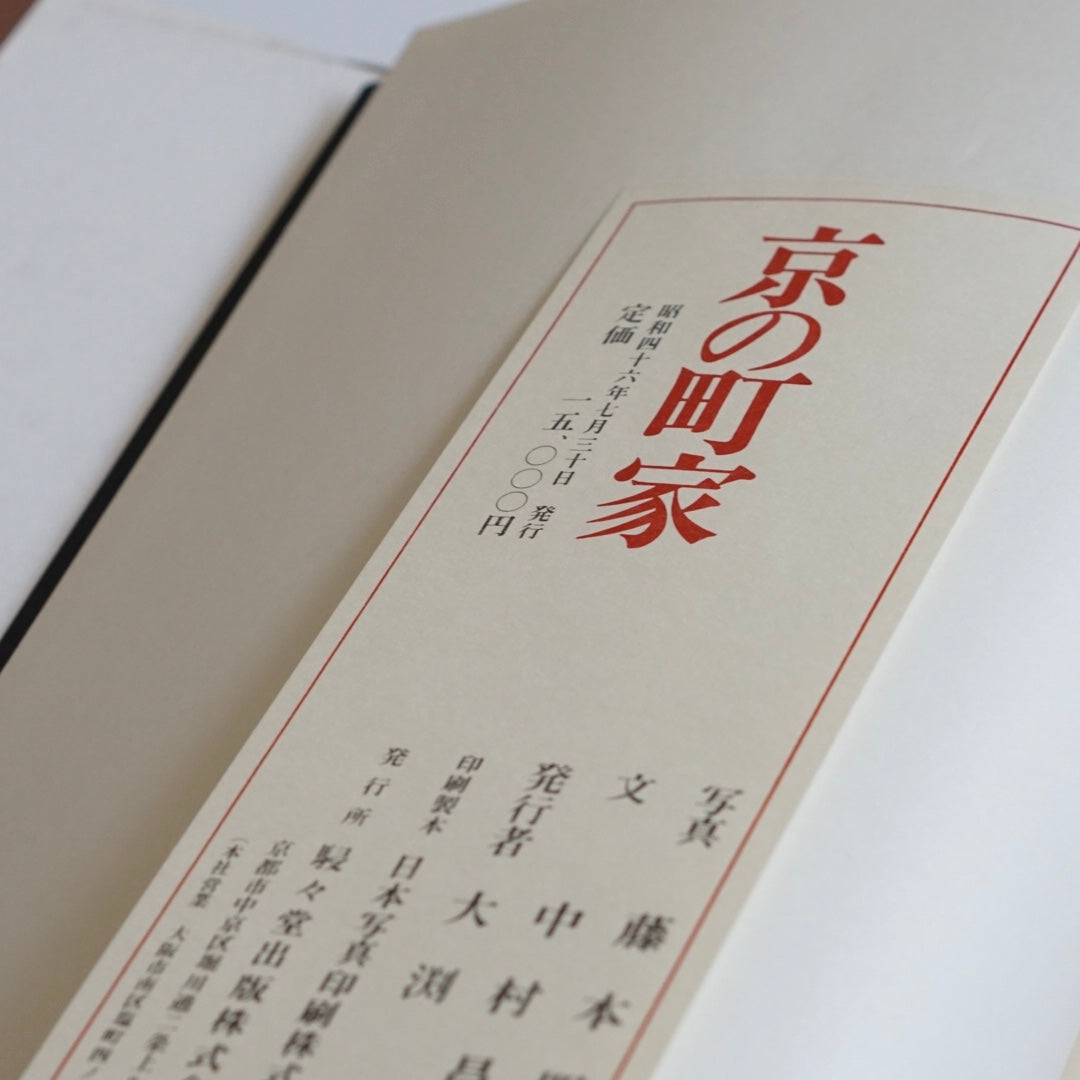 京の町家
昭和四十六年七月三十日 発行
定価 一五、〇〇〇円
写真 藤本
文 中村
発行者 大渕
印刷製本 日本写真印刷株式
発行所 駸々堂出版株式
京都市中京区堀川通二条上
（本社営業 大阪市南区